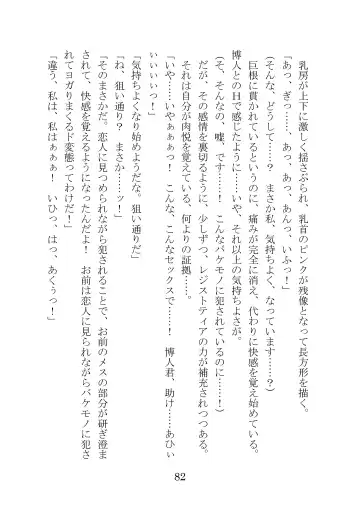 乳房が上下に激しく揺さぶられ、乳首のピンクが残像となって長方形を描く。
「あっ、ぎっ……、あっ、あっ、あんっ、いふっ！」
（そんな、どうして……？　まさか私、気持ちよく、なっています……？）
　巨根に貫かれているというのに、痛みが完全に消え、代わりに快感を覚え始めている。
博人との日で感じたように……いや、それ以上の気持ちよさが。
（そ、そんなの、嘘、です……！　こんなバケモノに犯されているのに……！）
　だが、その感情を裏切るように、少しずつ、レジストティアの力が補充されつつある。
　それは自分が肉悦を覚えている、何よりの証拠……。
「いや……いやぁぁぁっ！　こんな、こんなセックスで……！　博人君、助け……あひぃ
ぃぃぃいっ！」
「気持ちよくなり始めようだな。狙い通りだ」
「ね、狙い通り？　まさか……ッ！」
「そのまさかだ。恋人に見つめられながら犯されることで、お前のメスの部分が研ぎ澄ま
されて、快感を覚えるようになったんだよ！　お前は恋人に見られながらバケモノに犯さ
れてヨガりまくるド変態ってわけだ！」
「違う、私は、私はぁぁぁ！　いひっ、はっ、あくぅっ！」
82